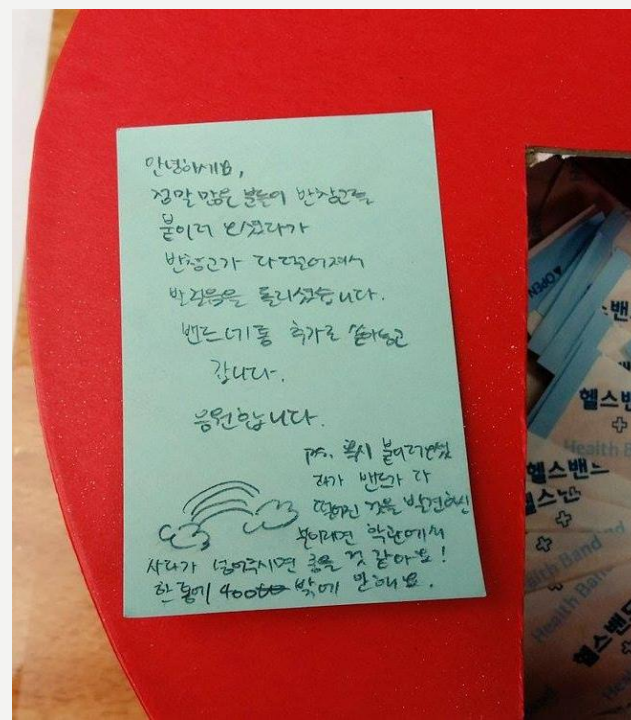 안녕하세요,
정말 많은 분들이 반창고를
붙이러 오셨다가
반창고가 다 떨어져서
발걸음을 돌리셨습니다.
밴드 4통 추가로 쏟아놓고
갑니다.
응원합니다.
ps. 혹시 붙이러 오셨
다가 밴드가 다
떨어진 것을 발견하신
분이라면 학관에서
사다가 넣어주시면 좋을 것 같아요!
한 통에 400원 밖에 안해요.
OPEN
밴
헬스밴
Health B
헬스밴드
헬스밴
Health Band
Health Band
헬스밴드